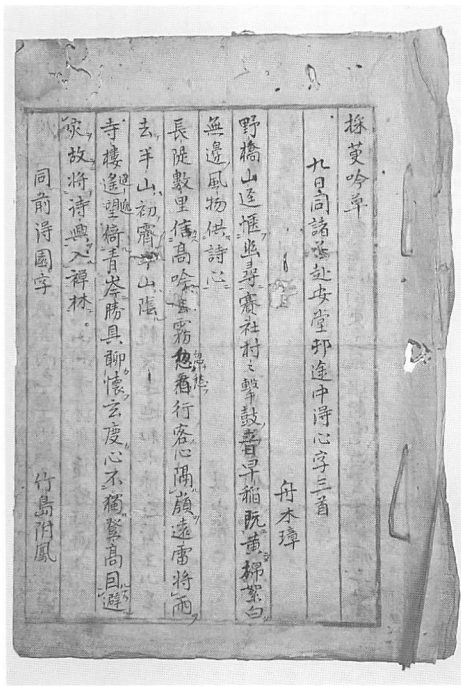 採萸吟草
九日同諸子赴安堂邨途中得心字三首
舟木璋
野橋山逕愜幽尋賽社村々擊鼓音早稲既黄棉絮白
無邊風物供詩心
長陡數里信高吟雲霧忽看行客心隔嶺遠雷将雨
去半山初霽半山陰
寺樓遙望倚青岑勝具聊懐玄度心不獨登高回避
家故将詩興入禅林
同前得園字
竹島附鳳